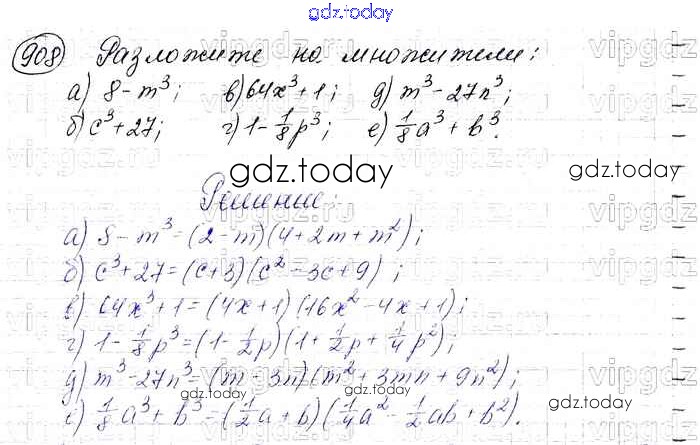 gdz.today
908 Разложите на множители:
а) 8 - m³; в) 64x³ + 1; д) m³ - 27n³;
б) c³ + 27; г) 1 - 1/8 p³; е) 1/8 a³ + b³.
gdz.today gdz.today
Решение:
а) 8 - m³ = (2 - m)(4 + 2m + m²);
б) c³ + 27 = (c + 3)(c² - 3c + 9);
в) 64x³ + 1 = (4x + 1)(16x² - 4x + 1);
г) 1 - 1/8 p³ = (1 - 1/2 p)(1 + 1/2 p + 1/4 p²);
д) m³ - 27n³ = (m - 3n)(m² + 3mn + 9n²);
е) 1/8 a³ + b³ = (1/2 a + b)(1/4 a² - 1/2 ab + b²).
gdz.today gdz.today